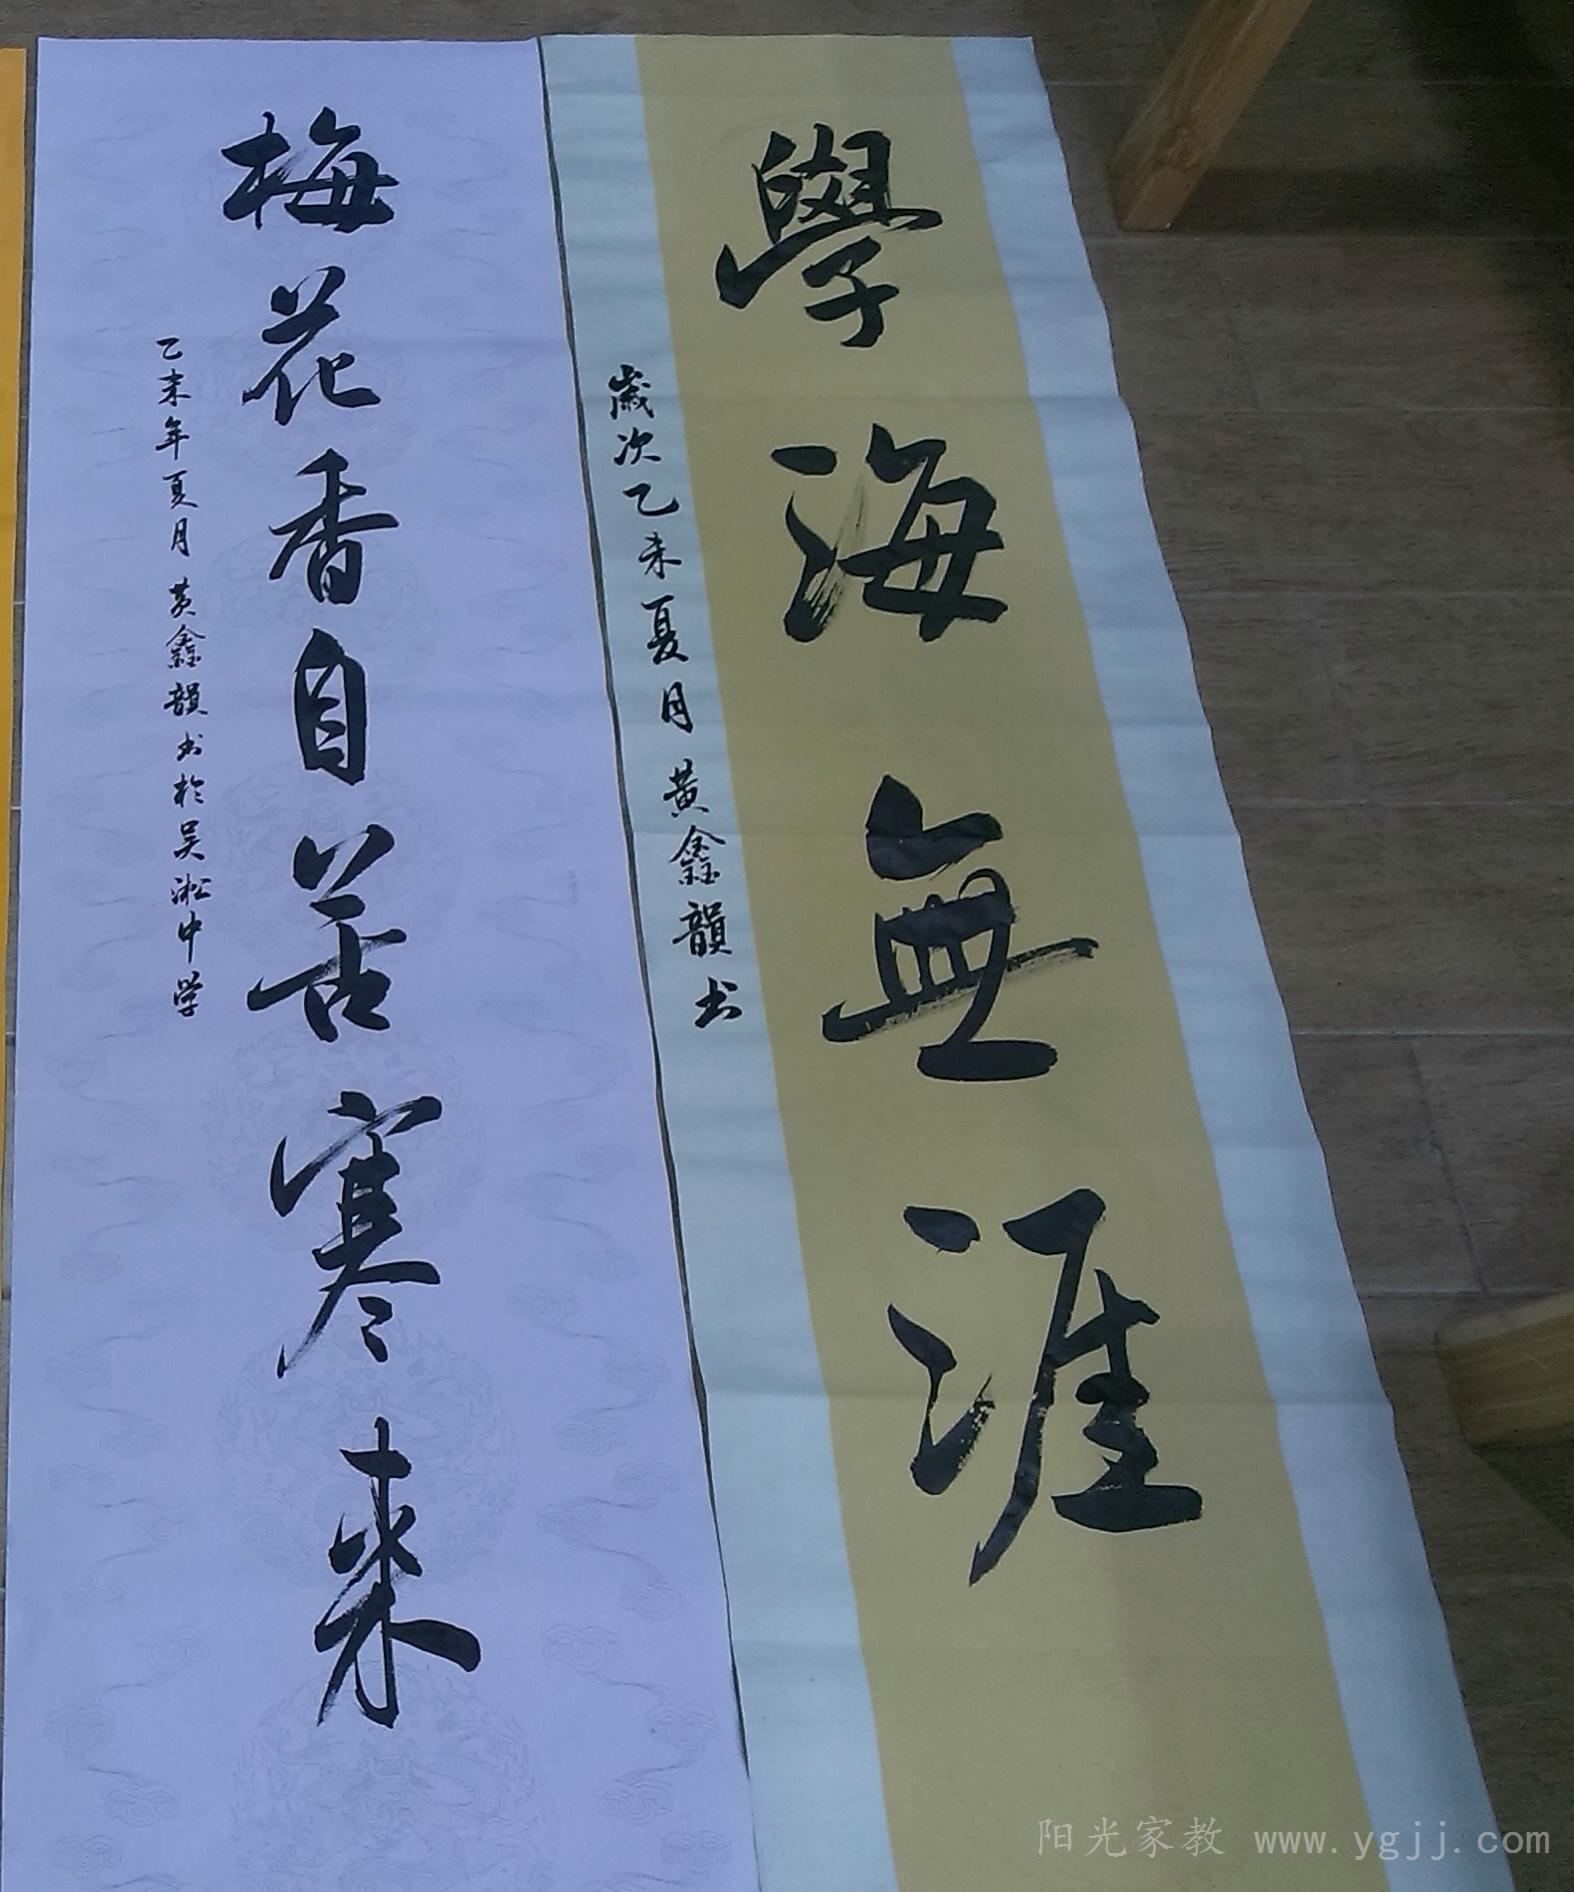 學海無涯
歲次乙未夏月黄鑫韻书
梅花香自苦寒来
乙未年夏月黄鑫韻书於吴淞中学
阳光家教 www.ygjj.com